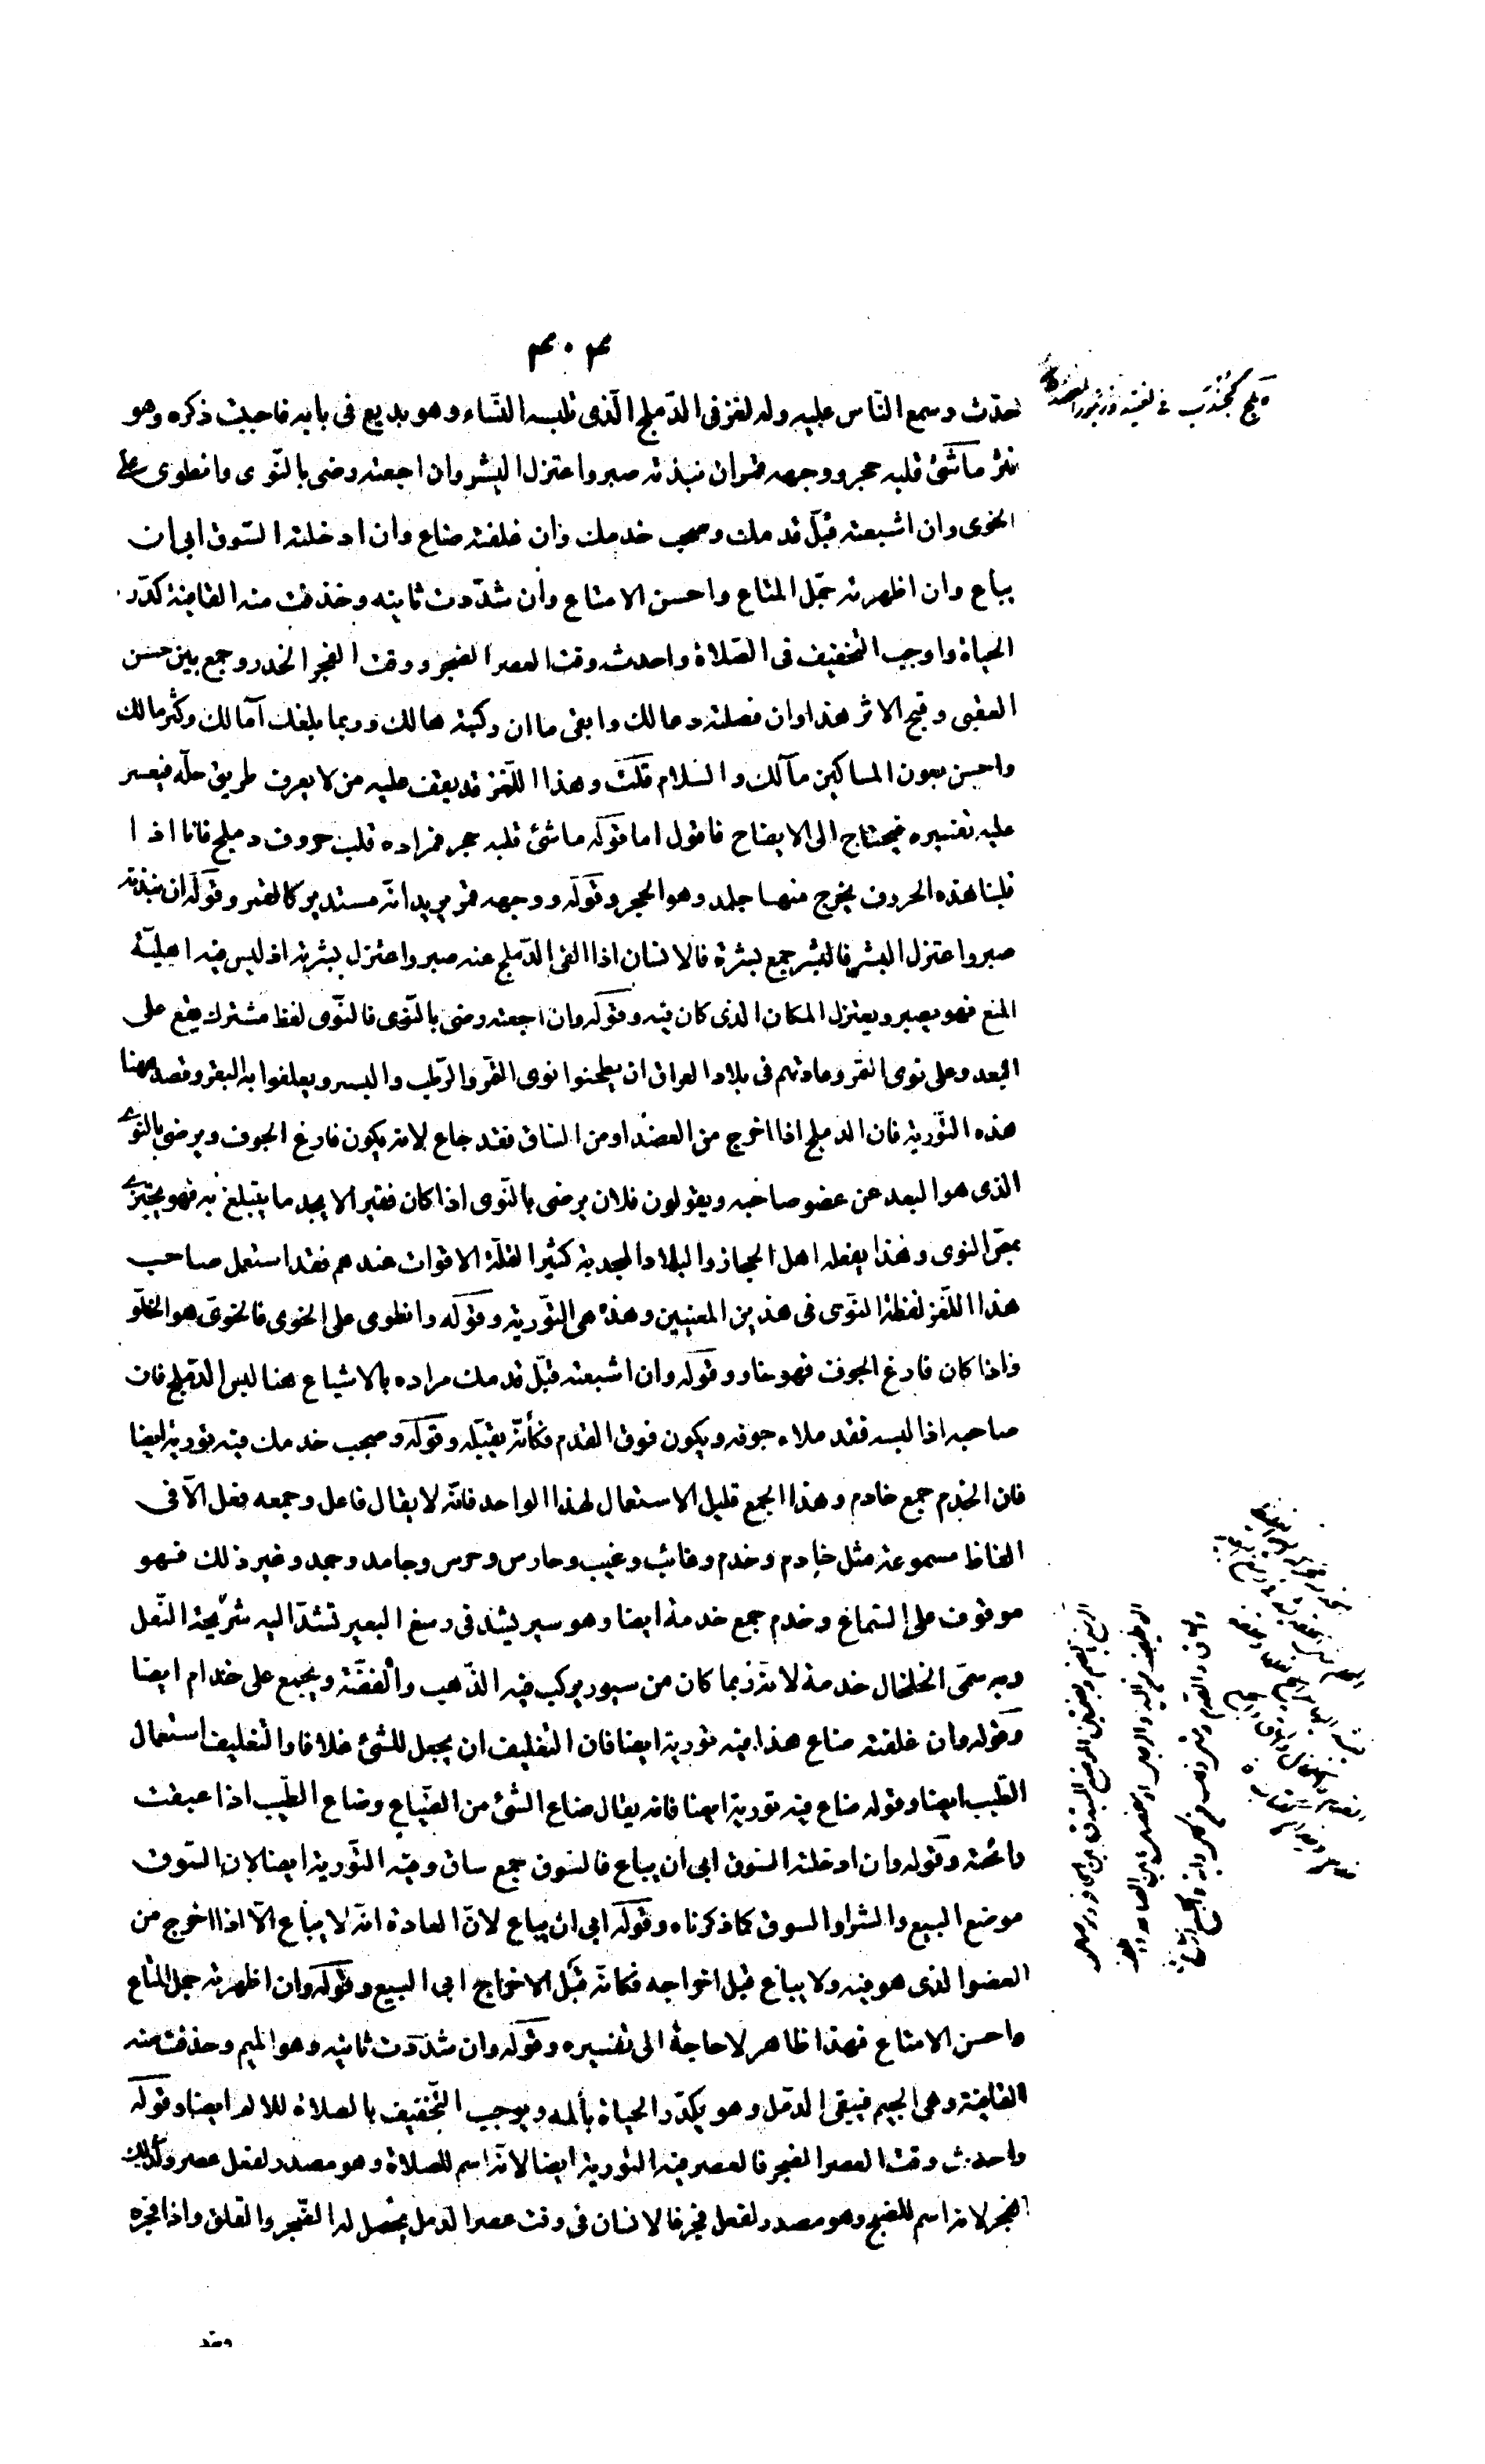 ٤٠٤
تحدّث وسمع النّاس عليه وله لغز فى الدّملج الّذى تلبسه النّساء وهو بديع فى بابه فاحببت ذكره وهو
نثر ما شئ قلبه حجر ووجهه قمر ان نبذته صبر واعتزل البشر وان اجعته رضى بالنّوى وانطوى على
الخوى وان اشبعته قبّل قدمك وصحب خدمك وان غلفته ضاع وان ادخلته السّوق ابى ان
يباع وان اظهرته جمّل المتاع واحسن الامتاع وان شدّدت ثانيه وحذفت منه القافية كدّر
الحياة واوجب التخفيف فى الصّلاة واحدث وقت العصر الضجر ووقت الفجر الخدر وجمع بين حسن
العقبى وقبح الاثر هذا وان فصلته دعا لك وابقى ما ان ركبته هالك وربما بلغك آمالك وكثر مالك
واحسن بعون المساكين مآلك والسّلام قلت وهذا اللّغز قد يقف عليه من لا يعرف طريق حلّه فيعسر
عليه تفسيره فيحتاج الى الايضاح فاقول اما قوله ما شئ قلبه حجر فمراده قلب حروف دملج فانا اذا
قلبنا هذه الحروف يخرج منها جلمد وهو الحجر وقوله ووجهه قمر يريد انّه مستدير كالقمر وقوله ان نبذته
صبر واعتزل البشر فالبشر جمع بشرة فالانسان اذا القى الدّملج عنه صبر واعتزل بشرته اذ ليس فيه اهليّة
المنع فهو يصبر ويعتزل المكان الذى كان فيه وقوله وان اجعته رضى بالنّوى فالنّوى لفظ مشترك يقع على
البعد وعلى نوى التمر وعادتهم فى بلاد العراق ان يطحنوا نوى التّمر والرّطب والبسر ويعلفوا به البقر وقصد ههنا
هذه التّورية فان الدملج اذا اخرج من العضد او من الساق فقد جاع لانه يكون فارغ الجوف ويرضى بالنّوى
الذى هو البعد عن عضو صاحبه ويقولون فلان يرضى بالنّوى اذا كان فقيرا لا يجد ما يتبلغ به فهو يجتزى
بمصّ النوى وهذا يفعله اهل الحجاز والبلاد المجدبة كثيرا لقلّة الاقوات عندهم فقد استعمل صاحب
هذا اللّغز لفظة النّوى فى هذين المعنيين وهذه هى التّورية وقوله وانطوى على الخوى فالخوى هو الخلوّ
واذا كان فارغ الجوف فهو خاو وقوله وان اشبعته قبّل قدمك مراده بالاشباع هنا لبس الدّملج فان
صاحبه اذا لبسه فقد ملاء جوفه ويكون فوق القدم فكأنّه يقبّله وقوله وصحب خدمك فيه تورية ايضا
فان الخدم جمع خادم وهذا الجمع قليل الاستعمال لهذا الواحد فانّه لا يقال فاعل وجمعه فعل الّا فى
الفاظ مسموعة مثل خادم وخدم وغائب وغيب وحارس وحرس وجامد وجمد وغير ذلك فهو
موقوف على السّماع وخدم جمع خدمة ايضا وهو سير يشدّ فى رسغ البعير تشدّ اليه شريحة النّعل
وبه سمّى الخلخال خدمة لانه ربما كان من سيور يركب فيه الذّهب والفضّة ويجمع على خدام ايضا
وقوله وان غلفته ضاع هذا فيه تورية ايضا فان التغليف ان يجعل للشئ غلافا والتغليف استعمال
الطّيب ايضا وقوله ضاع فيه تورية ايضا فانه يقال ضاع الشئ من الضّياع وضاع الطّيب اذا عبقت
رائحته وقوله وان ادخلته السوق ابى ان يباع فالسوق جمع ساق وفيه التّورية ايضا لان السّوق
موضع البيع والشرا والسوق كما ذكرناه وقوله ابى ان يباع لانّ العادة انّه لا يباع الّا اذا اخرج من
العضو الذى هو فيه ولا يباع قبل اخراجه فكانّه قبل الاخراج ابى البيع وقوله وان اظهرته جمل المتاع
واحسن الامتاع فهذا ظاهر لا حاجة الى تفسيره وقوله وان شدّدت ثانيه وهو الميم وحذفت منه
القافية وهى الجيم فيبقى الدمّل وهو يكدّر الحياة بألمه ويوجب التّخفيف بالصلاة للالم ايضا وقوله
واحدث وقت العصر الضجر فالعصر فيه التورية ايضا لانّه اسم للصلاة وهو مصدر لفعل عصر وكذلك
الفجر لانه اسم للصّبح وهو مصدر لفعل فجر فالانسان فى وقت عصر الدمل يحصل له الضّجر والقلق واذا فجره
وقد